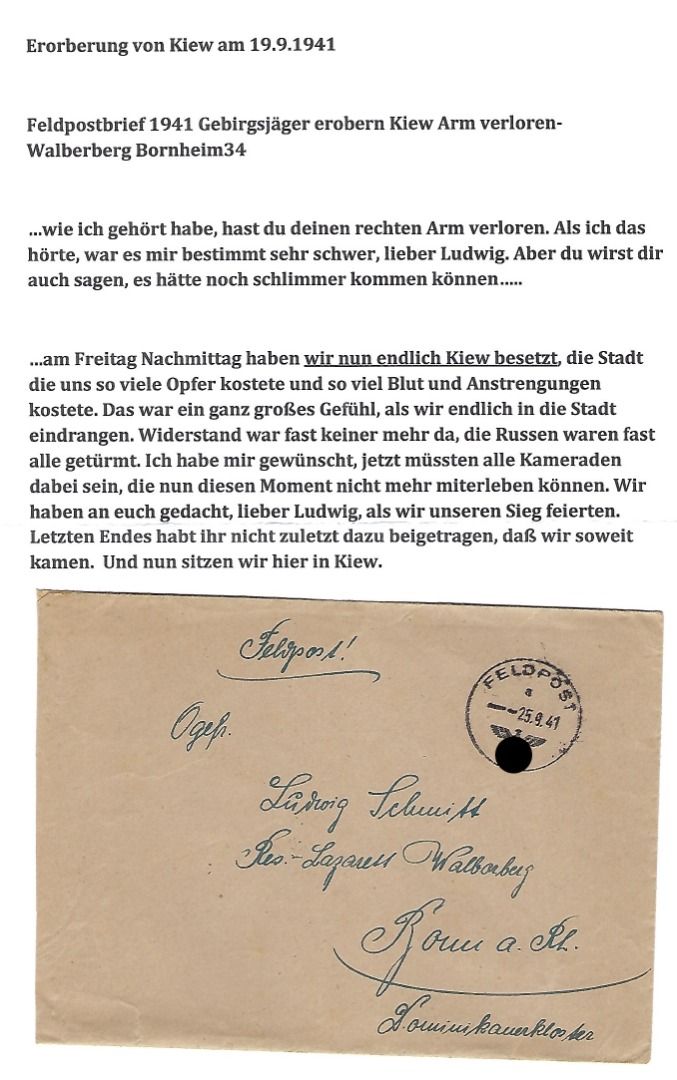 Erorberung von Kiew am 19.9.1941
Feldpostbrief 1941 Gebirgsjäger erobern Kiew Arm verloren-
Walberberg Bornheim34
...wie ich gehört habe, hast du deinen rechten Arm verloren. Als ich das
hörte, war es mir bestimmt sehr schwer, lieber Ludwig. Aber du wirst dir
auch sagen, es hätte noch schlimmer kommen können.....
...am Freitag Nachmittag haben wir nun endlich Kiew besetzt, die Stadt
die uns so viele Opfer kostete und so viel Blut und Anstrengungen
kostete. Das war ein ganz großes Gefühl, als wir endlich in die Stadt
eindrangen. Widerstand war fast keiner mehr da, die Russen waren fast
alle getürmt. Ich habe mir gewünscht, jetzt müssten alle Kameraden
dabei sein, die nun diesen Moment nicht mehr miterleben können. Wir
haben an euch gedacht, lieber Ludwig, als wir unseren Sieg feierten.
Letzten Endes habt ihr nicht zuletzt dazu beigetragen, daß wir soweit
kamen. Und nun sitzen wir hier in Kiew.
Feldpost!
FELDPOST
a
--25.9.41
Ogefr.
Ludwig Schmitt
Res.-Lazarett Walberberg
Bonn a. Rh.
Dominikanerkloster